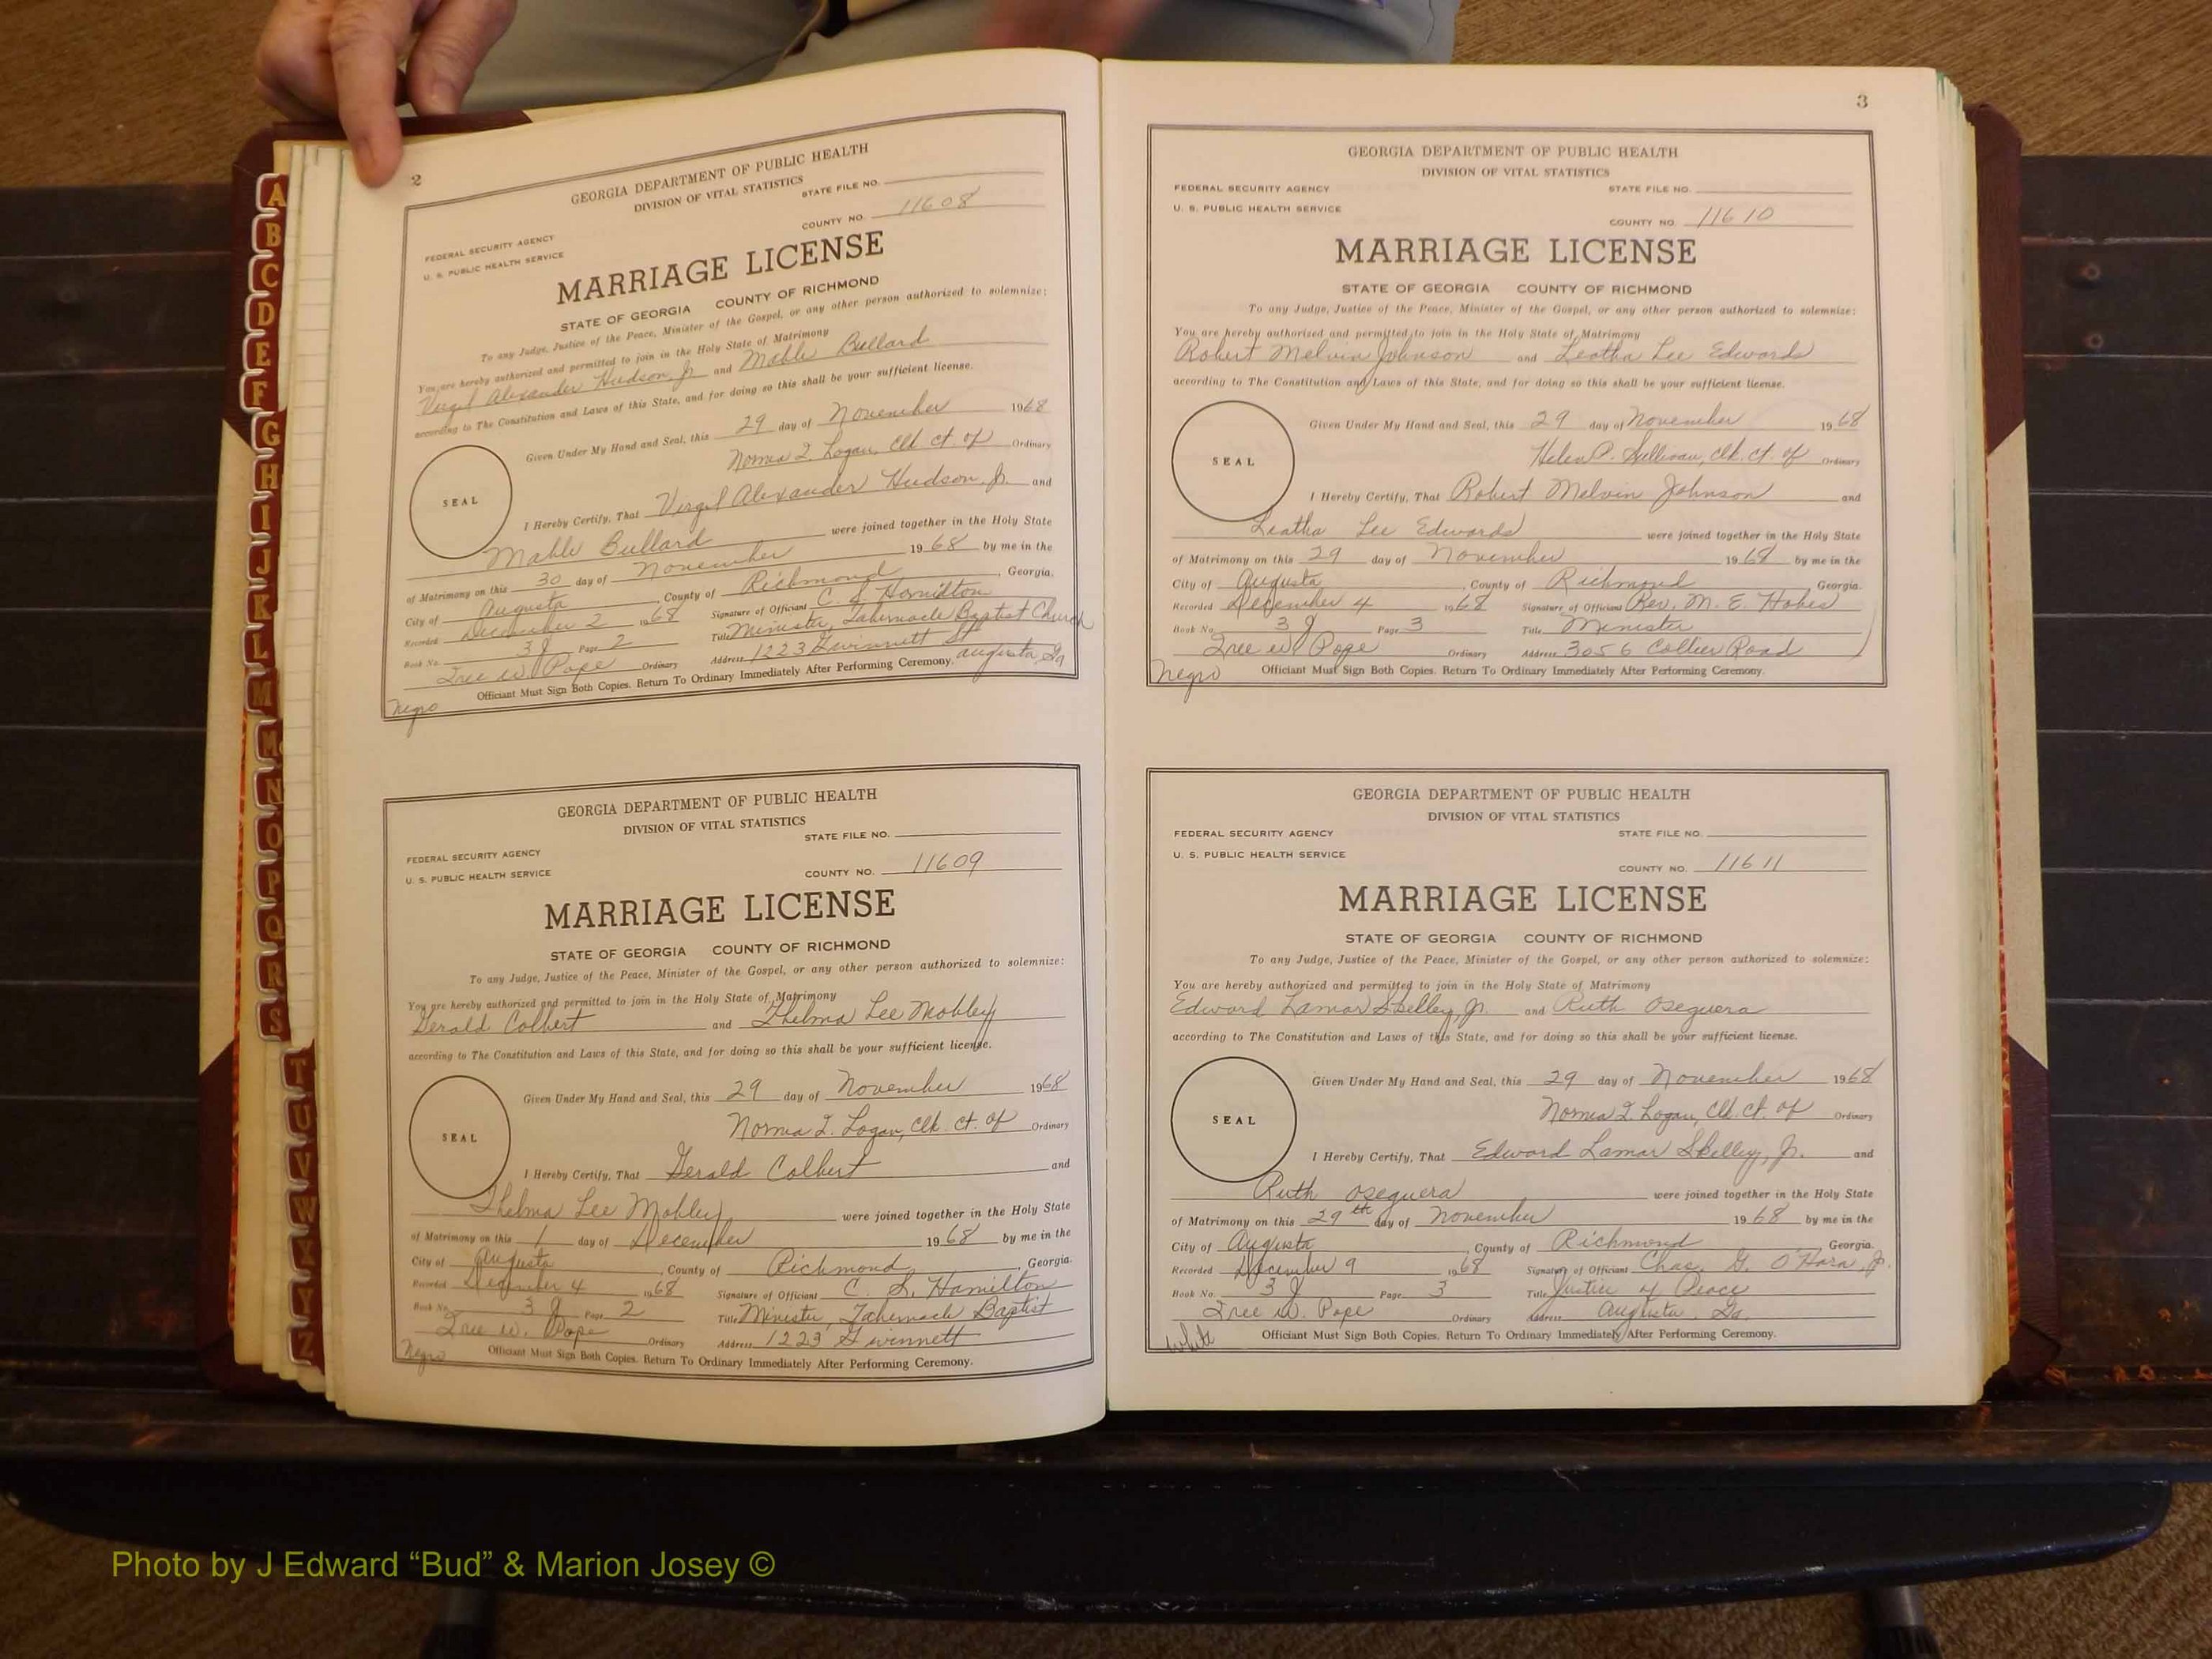 A
B
C
D
E
F
G
H
I
J
K
L
M
Mc
N
O
P
Q
R
S
T
U
V
W
X
Y
Z
2
GEORGIA DEPARTMENT OF PUBLIC HEALTH
DIVISION OF VITAL STATISTICS
STATE FILE NO.
COUNTY NO. 11608
FEDERAL SECURITY AGENCY
U. S. PUBLIC HEALTH SERVICE
MARRIAGE LICENSE
STATE OF GEORGIA COUNTY OF RICHMOND
To any Judge, Justice of the Peace, Minister of the Gospel, or any other person authorized to solemnize:
You are hereby authorized and permitted to join in the Holy State of Matrimony
Virgil Alexander Hudson, Jr. and Mable Bullard
according to The Constitution and Laws of this State, and for doing so this shall be your sufficient license.
Given Under My Hand and Seal, this 29 day of November 1968
Norma I. Logan, Clk. ct. of Ordinary
SEAL
I Hereby Certify, That Virgil Alexander Hudson, Jr. and
Mable Bullard were joined together in the Holy State
of Matrimony on this 30 day of November 1968 by me in the
City of Augusta, County of Richmond, Georgia.
Recorded December 2 1968 Signature of Officiant C. S. Hamilton
Book No. 3 J Page 2 Title Minister, Tabernacle Baptist Church
Tree W. Pope Ordinary Address 1223 Gwinnett St
Augusta, Ga
Officiant Must Sign Both Copies. Return To Ordinary Immediately After Performing Ceremony.
Negro
GEORGIA DEPARTMENT OF PUBLIC HEALTH
DIVISION OF VITAL STATISTICS
STATE FILE NO.
FEDERAL SECURITY AGENCY
U. S. PUBLIC HEALTH SERVICE
COUNTY NO. 11609
MARRIAGE LICENSE
STATE OF GEORGIA COUNTY OF RICHMOND
To any Judge, Justice of the Peace, Minister of the Gospel, or any other person authorized to solemnize:
You are hereby authorized and permitted to join in the Holy State of Matrimony
Gerald Colbert and Thelma Lee Mobley
according to The Constitution and Laws of this State, and for doing so this shall be your sufficient license.
Given Under My Hand and Seal, this 29 day of November 1968
Norma I. Logan, Clk. ct. of Ordinary
SEAL
I Hereby Certify, That Gerald Colbert and
Thelma Lee Mobley were joined together in the Holy State
of Matrimony on this 1 day of December 1968 by me in the
City of Augusta, County of Richmond, Georgia.
Recorded December 4 1968 Signature of Officiant C. S. Hamilton
Book No. 3 J Page 2 Title Minister, Tabernacle Baptist
Tree W. Pope Ordinary Address 1223 Gwinnett
Officiant Must Sign Both Copies. Return To Ordinary Immediately After Performing Ceremony.
Negro
3
GEORGIA DEPARTMENT OF PUBLIC HEALTH
DIVISION OF VITAL STATISTICS
FEDERAL SECURITY AGENCY STATE FILE NO.
U. S. PUBLIC HEALTH SERVICE
COUNTY NO. 11610
MARRIAGE LICENSE
STATE OF GEORGIA COUNTY OF RICHMOND
To any Judge, Justice of the Peace, Minister of the Gospel, or any other person authorized to solemnize:
You are hereby authorized and permitted to join in the Holy State of Matrimony
Robert Melvin Johnson and Leatha Lee Edwards
according to The Constitution and Laws of this State, and for doing so this shall be your sufficient license.
Given Under My Hand and Seal, this 29 day of November 1968
Helen P. Sullivan, Clk. ct. of Ordinary
SEAL
I Hereby Certify, That Robert Melvin Johnson and
Leatha Lee Edwards were joined together in the Holy State
of Matrimony on this 29 day of November 1968 by me in the
City of Augusta, County of Richmond Georgia.
Recorded December 4 1968 Signature of Officiant Rev. M. E. Hobes
Book No. 3 J Page 3 Title Minister
Tree W. Pope Ordinary Address 3056 Collier Road
Officiant Must Sign Both Copies. Return To Ordinary Immediately After Performing Ceremony.
Negro
GEORGIA DEPARTMENT OF PUBLIC HEALTH
DIVISION OF VITAL STATISTICS
FEDERAL SECURITY AGENCY STATE FILE NO.
U. S. PUBLIC HEALTH SERVICE
COUNTY NO. 11611
MARRIAGE LICENSE
STATE OF GEORGIA COUNTY OF RICHMOND
To any Judge, Justice of the Peace, Minister of the Gospel, or any other person authorized to solemnize:
You are hereby authorized and permitted to join in the Holy State of Matrimony
Edward Lamar Skelley, Jr. and Ruth Oseguera
according to The Constitution and Laws of this State, and for doing so this shall be your sufficient license.
Given Under My Hand and Seal, this 29 day of November 1968
Norma I. Logan, Clk. ct. of Ordinary
SEAL
I Hereby Certify, That Edward Lamar Skelley, Jr. and
Ruth Oseguera were joined together in the Holy State
of Matrimony on this 29th day of November 1968 by me in the
City of Augusta, County of Richmond, Georgia.
Recorded December 9 1968 Signature of Officiant Chas. G. O'Hara, Jr.
Book No. 3 J Page 3 Title Justice of Peace
Tree W. Pope Ordinary Address Augusta, Ga.
Officiant Must Sign Both Copies. Return To Ordinary Immediately After Performing Ceremony.
White
Photo by J Edward “Bud” & Marion Josey ©